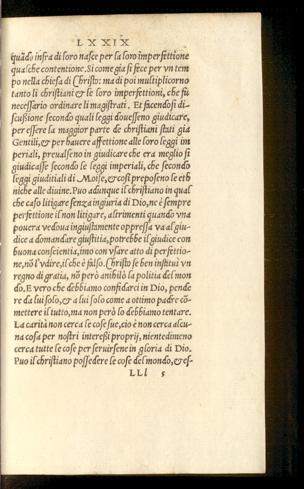 LXXIX
quãdo infra di loro nasce per la loro imperfettione
qualche contentione. Si come gia si fece per vn tem
po nella chiesa di Christo: ma di poi multiplicorno
tanto li christiani & le loro imperfettioni, che fù
necessario ordinare li magistrati. Et facendosi di-
scussione secondo quali leggi douesseno giudicare,
per essere la maggior parte de christiani stati gia
Gentili, & per hauere affettione alle loro leggi im
periali, preualseno in giudicare che era meglio si
giudicasse secondo le leggi imperiali, che secondo
leggi giuditiali di Moise, & cosi preposeno le eth
niche alle diuine. Puo adunque il christiano in qual
che caso litigare senza ingiuria di Dio, ne è sempre
perfettione il non litigare, altrimenti quando vna
pouera vedoua ingiustamente oppressa va al giu-
dice a domandare giustitia, potrebbe il giudice con
buona conscientia, imo con vsare atto di perfettio-
ne, nõ l'vdire, il che è falso. Christo se ben institui vn
regno di gratia, nõ però anihilò la politia del mon
do. E vero che debbiamo confidarci in Dio, pende
re da lui solo, & a lui solo come a ottimo padre cõ-
mettere il tutto, ma non però lo debbiamo tentare.
La carità non cerca le cose sue, cio è non cerca alcu-
na cosa per nostri interessi proprij, nientedimeno
cerca tutte le cose per seruirsene in gloria di Dio.
Puo il christiano possedere le cose del mondo, & es-
LLl 5